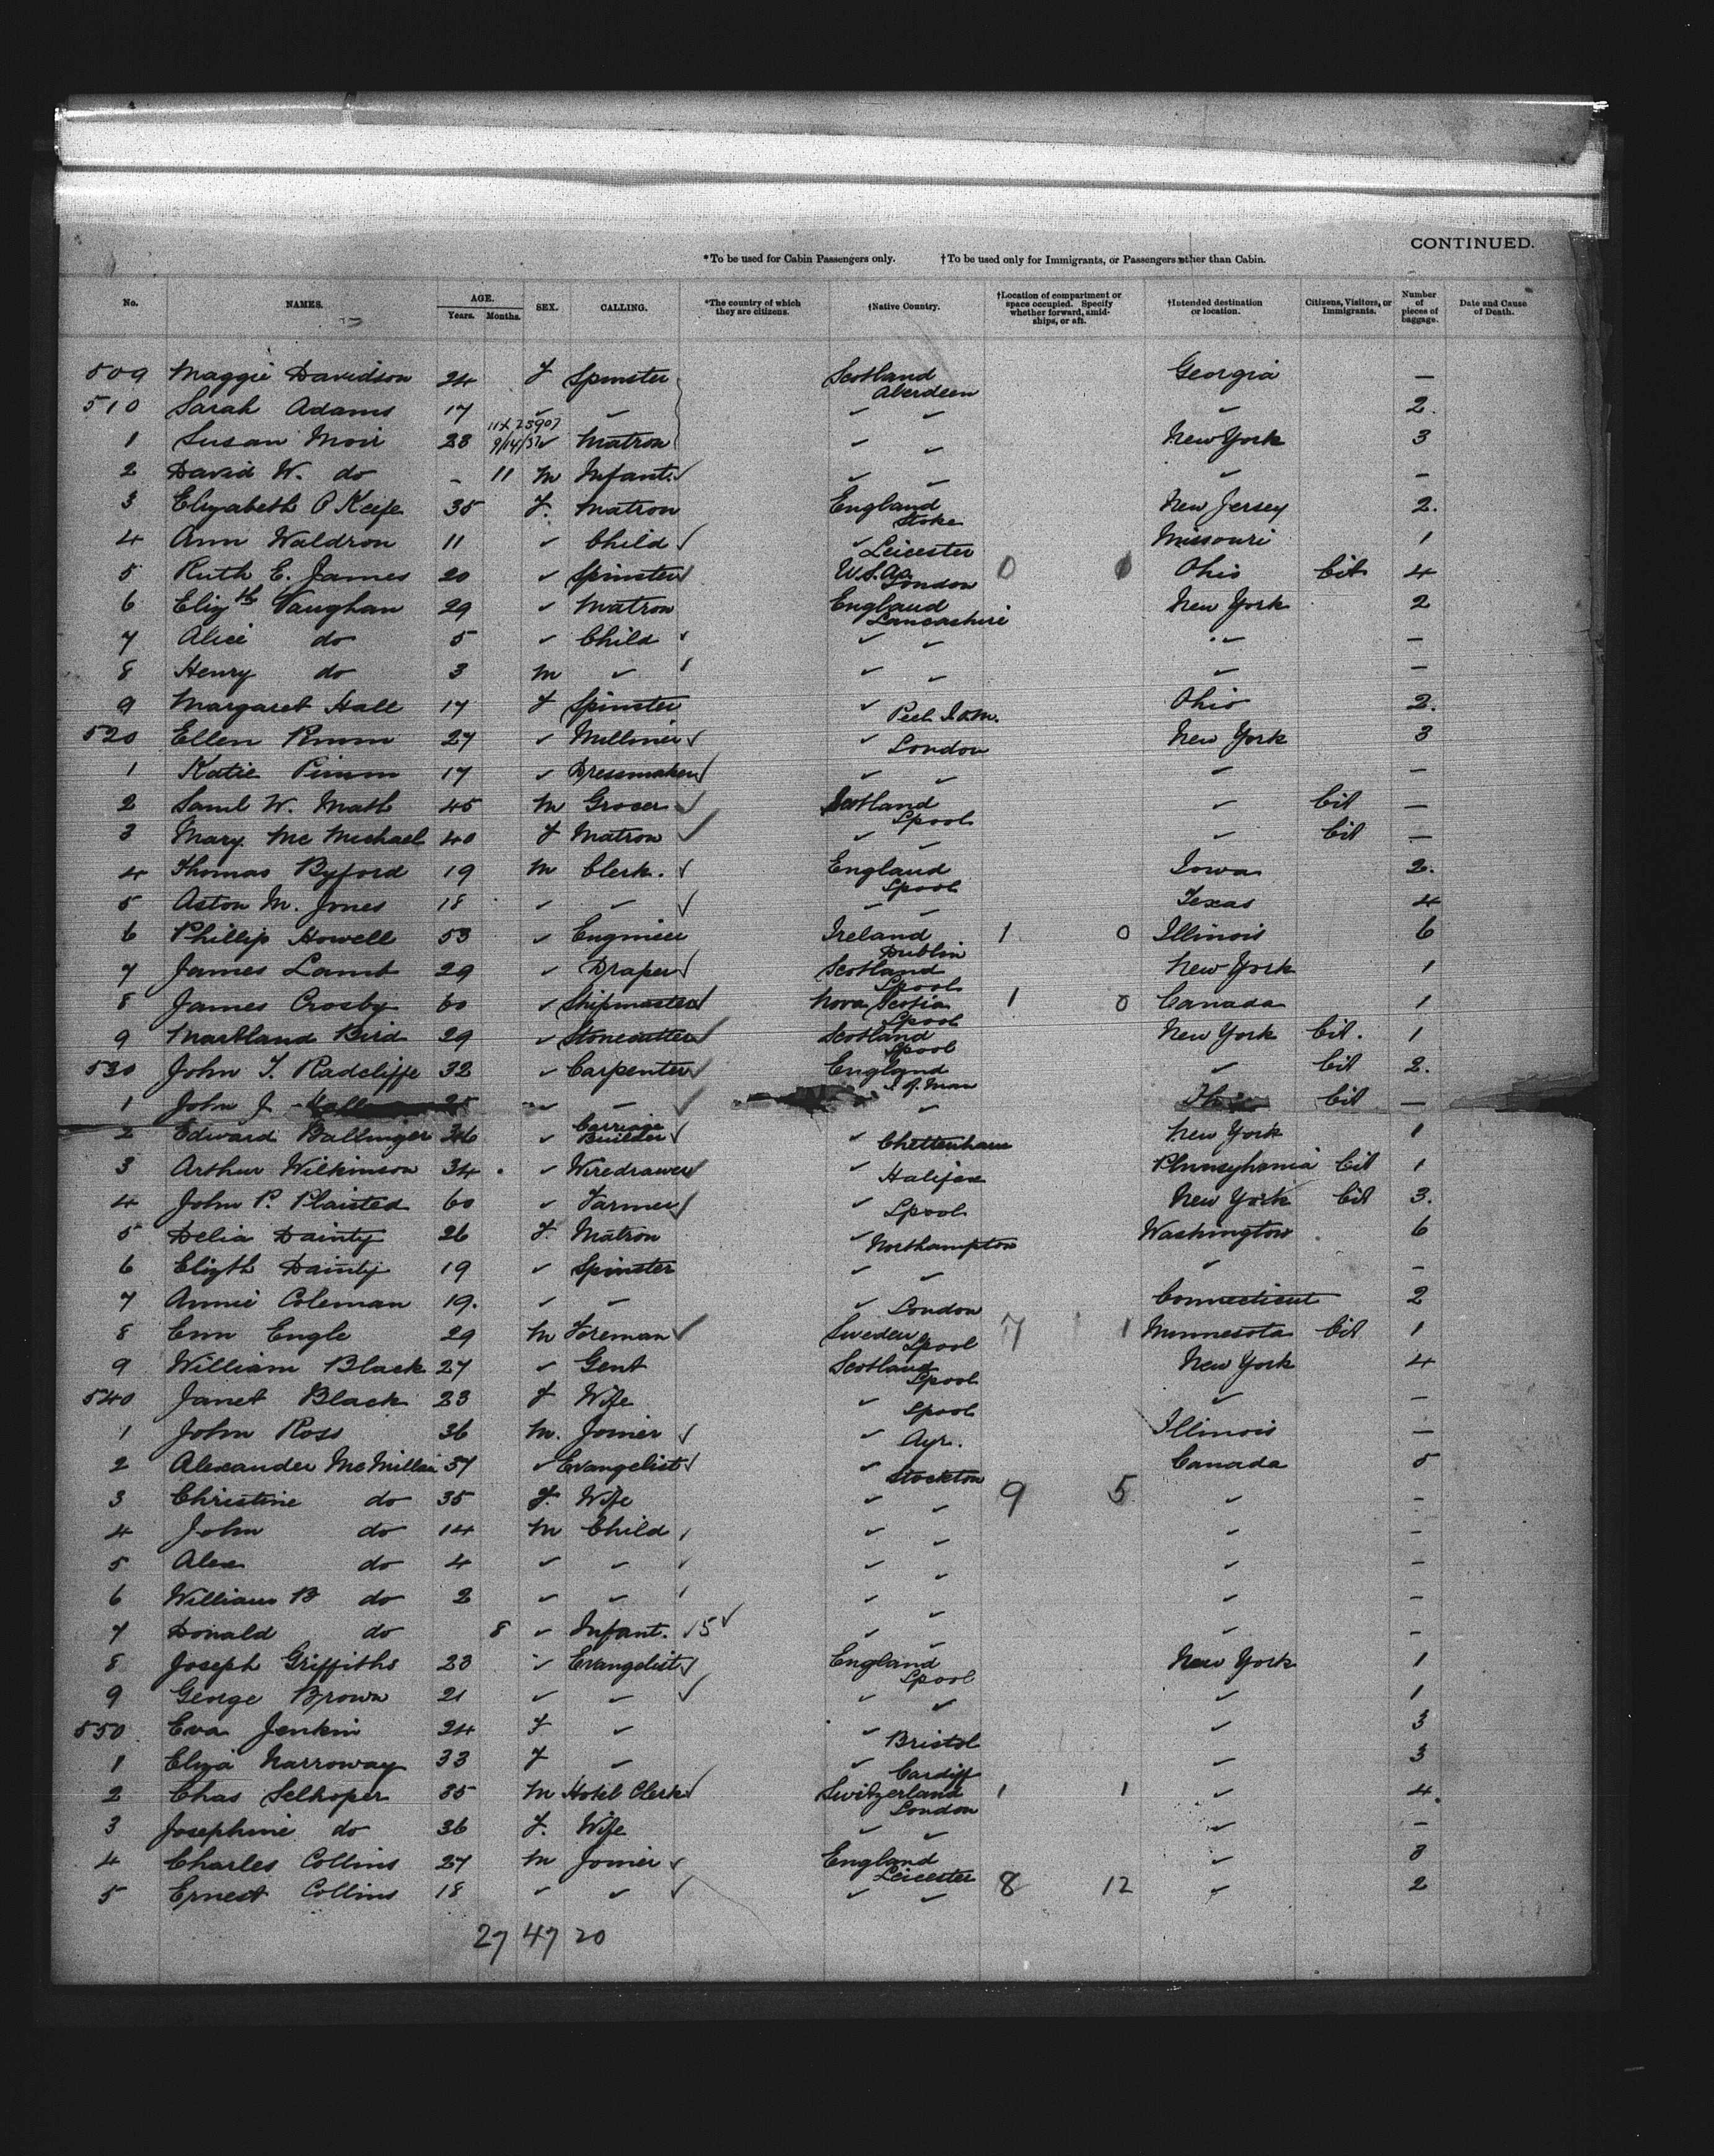 CONTINUED.
*To be used for Cabin Passengers only. †To be used only for Immigrants, or Passengers other than Cabin.
No. NAMES. AGE. Years. Months. SEX. CALLING. *The country of which they are citizens. †Native Country. †Location of compartment or space occupied. Specify whether forward, amidships, or aft. †Intended destination or location. Citizens, Visitors, or Immigrants. Number of pieces of baggage. Date and Cause of Death.
509 Maggie Davidson 24 F Spinster Scotland Aberdeen Georgia —
510 Sarah Adams 17 ✓ ✓ ✓ ✓ ✓ 2.
1 Susan Moir 28 ✓ Matron ✓ ✓ New York 3
2 David W. do - 11 M Infant. ✓ ✓ ✓ ✓ —
3 Elizabeth O Keefe 35 F. Matron England Stoke New Jersey 2.
4 Ann Waldron 11 ✓ Child ✓ ✓ Leicester Missouri 1
5 Ruth E. James 20 ✓ Spinster ✓ U.S.A. London 0 0 Ohio Cit 4
6 Elizth Vaughan 29 ✓ Matron England Lancashire New York 2
7 Alice do 5 ✓ Child ✓ ✓ ✓ ✓ —
8 Henry do 3 M ✓ ✓ ✓ ✓ —
9 Margaret Hall 17 F Spinster ✓ Peel I.O.M. Ohio 2.
520 Ellen 27 ✓ Milliner ✓ ✓ London New York 3
1 Katie Pimm 17 ✓ Dressmaker ✓ ✓ ✓ ✓ —
2 Saml W. Math 45 M Grocer ✓ Scotland Lpool ✓ Cit —
3 Mary Mc Michael 40 F Matron ✓ ✓ ✓ ✓ Cit —
4 Thomas Byford 19 M Clerk. ✓ England Lpool Iowa 2.
5 Aston M. Jones 18 ✓ ✓ ✓ ✓ ✓ Texas 4
6 Phillip Howell 53 ✓ Engineer Ireland Dublin 1 0 Illinois 6
7 James Lamb 29 ✓ Draper ✓ Scotland Lpool New York 1
8 James Crosby 60 ✓ Shipmaster ✓ Nova Scotia Lpool 1 0 Canada 1
9 Markland Bird 29 ✓ Stonecutter ✓ Scotland Lpool New York Cit. 1
530 John T. Radcliffe 32 ✓ Carpenter ✓ England I. of. Man ✓ Cit 2.
1 John J. ✓ ✓ Cit —
2 Edward Ballinger 36 ✓ Carriage Builder ✓ ✓ Cheltenham New York 1
3 Arthur Wilkinson 34 ✓ Wiredrawer ✓ ✓ Halifax Pennsylvania Cit 1
4 John P. Plaisted 60 ✓ Farmer ✓ ✓ Lpool New York Cit 3.
5 Delia Dainty 26 F. Matron ✓ Northampton Washington 6
6 Elizth Dainty 19 ✓ Spinster ✓ ✓ ✓ —
7 Annie Coleman 19. ✓ ✓ ✓ London Connecticut 2
8 Engle 29 M Foreman ✓ Sweden Lpool 7 1 Minnesota Cit 1
9 William Black 27 ✓ Gent Scotland Lpool New York 4
540 Janet Black 23 F Wife ✓ Lpool ✓ —
1 John Ross 36 M. Joiner ✓ ✓ Ayr. Illinois —
2 Alexander McMillan 57 ✓ Evangelist ✓ ✓ Stockton Canada 5
3 Christine do 35 F. Wife ✓ ✓ 9 5 ✓ —
4 John do 14 M Child ✓ ✓ ✓ —
5 Alex do 4 ✓ ✓ ✓ ✓ ✓ —
6 William B do 2 ✓ ✓ ✓ ✓ ✓ —
7 Donald do 8 ✓ Infant. ✓ 5 ✓ ✓ ✓ ✓ —
8 Joseph Griffiths 23 ✓ Evangelist ✓ England Lpool New York 1
9 George Brown 21 ✓ ✓ ✓ ✓ ✓ ✓ 1
550 Eva Jenkin 24 F ✓ ✓ Bristol ✓ 3
1 Eliza Narroway 33 F ✓ ✓ Cardiff ✓ 3
2 Chas Selhoper 35 M Hotel Clerk ✓ Switzerland London 1 1 ✓ 4.
3 Josephine do 36 F. Wife ✓ ✓ ✓ —
4 Charles Collins 27 M Joiner ✓ England Leicester ✓ 3
5 Ernest Collins 18 ✓ ✓ ✓ ✓ ✓ 8 12 ✓ 2
27 47 20